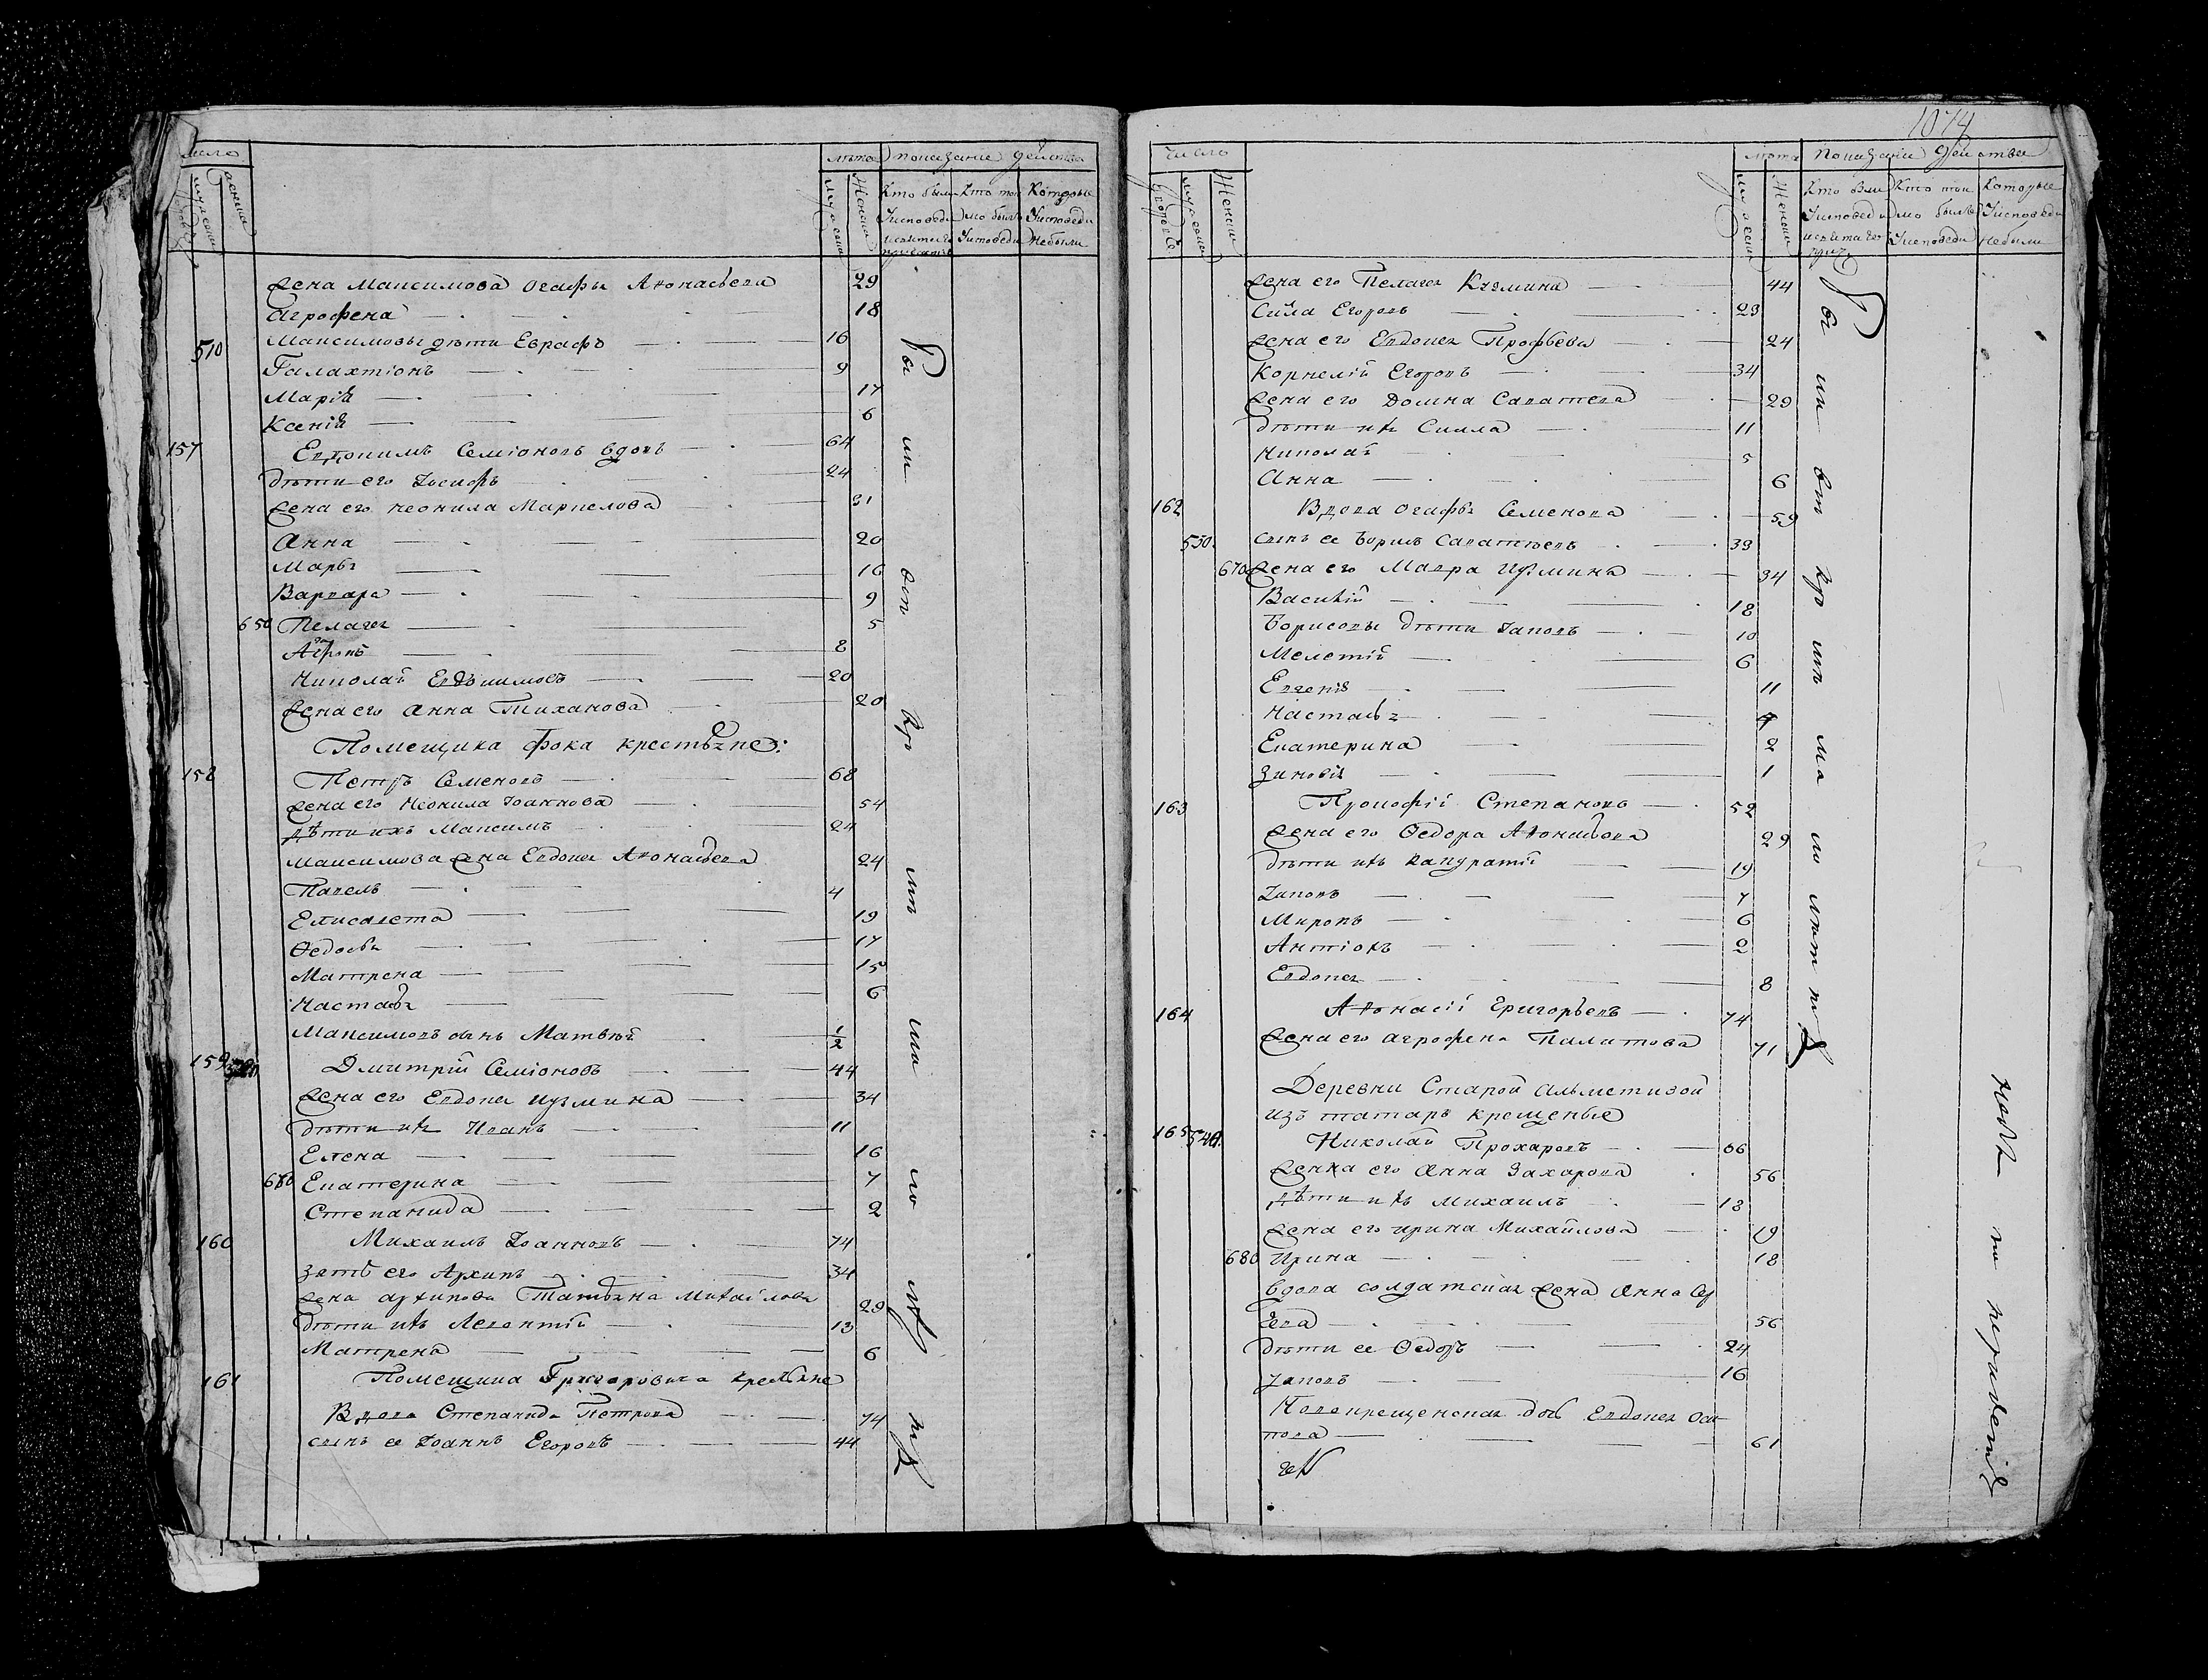 число
лѣта показание действа
мужеска
женска
Кто были
Исповеди
Кто ток
мо былъ
Исповеди
Которые
Исповеди
не были
жена Максимова Огафья Афонасьева 29
Агрофена 18
510 Максимовы дѣти Евграфъ 16
Галахтіонъ 9
Марія 17
Ксенія 6
157 Евдокимъ Семіоновъ вдовъ 64
дѣти его Іосифъ 24
жена его неонила Маркелова 31
Анна 20
Марья 16
Варвара 9
650 Пелагея 5
8
Николай Евдокимовъ 20
жена его Анна Тиханова 20
Помещика Фока крестьяне:
158 Петръ Семеновъ 68
жена его Неонила Іоаннова 54
дѣти ихъ Максимъ 24
Максимова жена Евдокея Афонасьева 24
Павелъ 4
Елисавета 19
Ѳедосья 17
Матрена 15
Настасья 6
Максимовъ сынъ Матвѣй 1/2
159 Дмитрій Семіоновъ 44
жена его Евдокея Кузмина 34
дѣти ихъ Иванъ 11
Елена 16
660 Екатерина 7
Степанида 2
160 Михаилъ Іоанновъ 74
зять его Архипъ 34
жена Архипова Татьяна Михайлова 29
дѣти ихъ Леонтій 13
Матрена 6
161 Помещика Григоровича крестьяне
Вдова Степанида Петрова 74
сынъ ее Іоаннъ Егоровъ 44
1074
число
лѣта Показаніе Действа
мужеска
Женска
Кто были
Исповеди
Кто ток
мо былъ
Исповеди
Которые
Исповеди
не были
жена его Пелагея Кузмина 44
Сила Егоровъ 23
жена его Евдокея Профьева 24
Корнелій Егоровъ 34
жена его Домна Саватеева 29
дѣти ихъ Силла 11
Николай 5
Анна 6
162 Вдова Огафья Семенова 59
530. сынъ ее Борисъ Саватѣевъ 39
670 жена его Мавра Кузмина 34
Василій 18
Борисовы дѣти Іаковъ 10
Мелетій 6
Евгенія 11
Настасья
Екатерина 2
Зиновія 1
163 Прокофій Степановъ 52
жена его Ѳедора Афонасьева 29
дѣти ихъ Кандратій 19
Іаковъ 7
Миронъ 6
Антіохъ 2
Евдокея 8
164 Афонасій Григорьевъ 74
жена его Агрофена Палатова 71
Деревни Старой Альметивой
изъ татаръ крещеные
165 540. Николай Прохаровъ 66
жена его Анна Захарова 56
дѣти ихъ Михаилъ 18
жена его Ирина Михайлова 19
680 Ирина 18
вдова солдатская жена Анна Сер
геева 56
дѣти ее Ѳедоръ 24
Іаковъ 16
Новокрещенская дочь Евдокея Оси
пова 61
Были
по нерадению